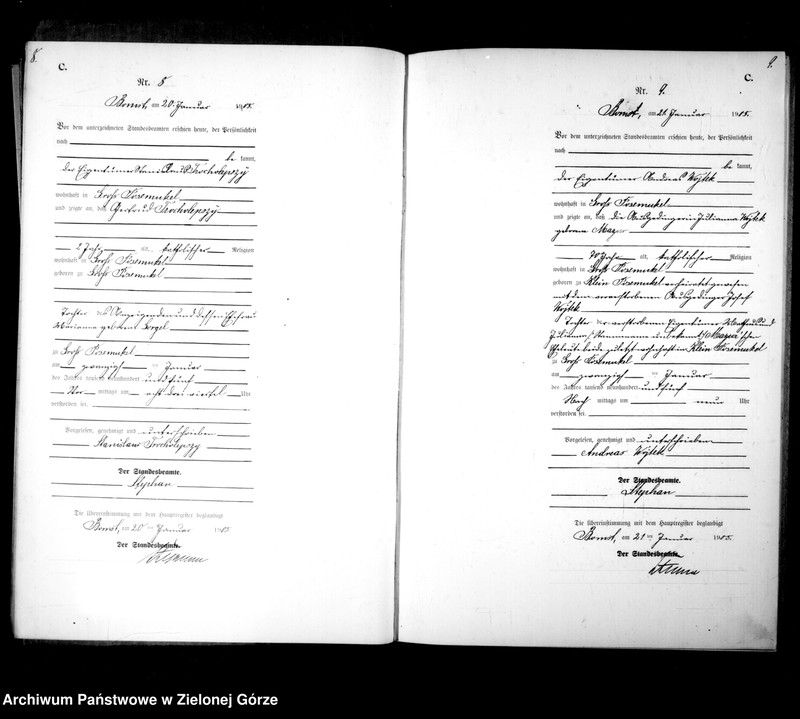 8.
C.
Nr. 8
Bomst, am 20. Januar 1905.
Vor dem unterzeichneten Standesbeamten erschien heute, der Persönlichkeit
nach
be kannt,
der Eigentümer Stanislaus Trocholepszy
wohnhaft in Groß Posemukel
und zeigte an, daß Gertrud Trocholepszy
2 Jahr alt, katholischer Religion
wohnhaft in Groß Posemukel
geboren zu Groß Posemukel
Tochter des Anzeigenden und dessen Ehefrau
Marianna geborene
zu Groß Posemukel
am zwanzigsten Januar
des Jahres tausend neunhundert und fünf
Vor mittags um acht drei viertel Uhr
verstorben sei.
Vorgelesen, genehmigt und unterschrieben
Stanislaus Trocholepszy
Der Standesbeamte.
Stephan
Die Übereinstimmung mit dem Hauptregister beglaubigt
Bomst, am 20ten Januar 1905
Der Standesbeamte.
9.
C.
Nr. 9.
Bomst, am 21. Januar 1905.
Vor dem unterzeichneten Standesbeamten erschien heute, der Persönlichkeit
nach
be kannt,
der Eigentümer Andreas Wojtek
wohnhaft in Groß Posemukel
und zeigte an, daß die Ausgedingerin Julianna Wojtek
geborene Mazur
70 Jahr alt, katholischer Religion
wohnhaft in Groß Posemukel
geboren zu Klein Posemukel verheiratet gewesen
mit dem verstorbenen Ausgedinger Josef
Wojtek
Tochter der verstorbenen Eigentümer Matheus und
Julianna, Stammname unbekannt, Mazur'schen
Eheleute beide zuletzt wohnhaft in Klein Posemukel
zu Groß Posemukel
am zwanzigsten Januar
des Jahres tausend neunhundert und fünf
Nach mittags um neun Uhr
verstorben sei.
Vorgelesen, genehmigt und unterschrieben
Andreas Wojtek
Der Standesbeamte.
Stephan
Die Übereinstimmung mit dem Hauptregister beglaubigt
Bomst, am 21ten Januar 1905.
Der Standesbeamte.
Archiwum Państwowe w Zielonej Górze